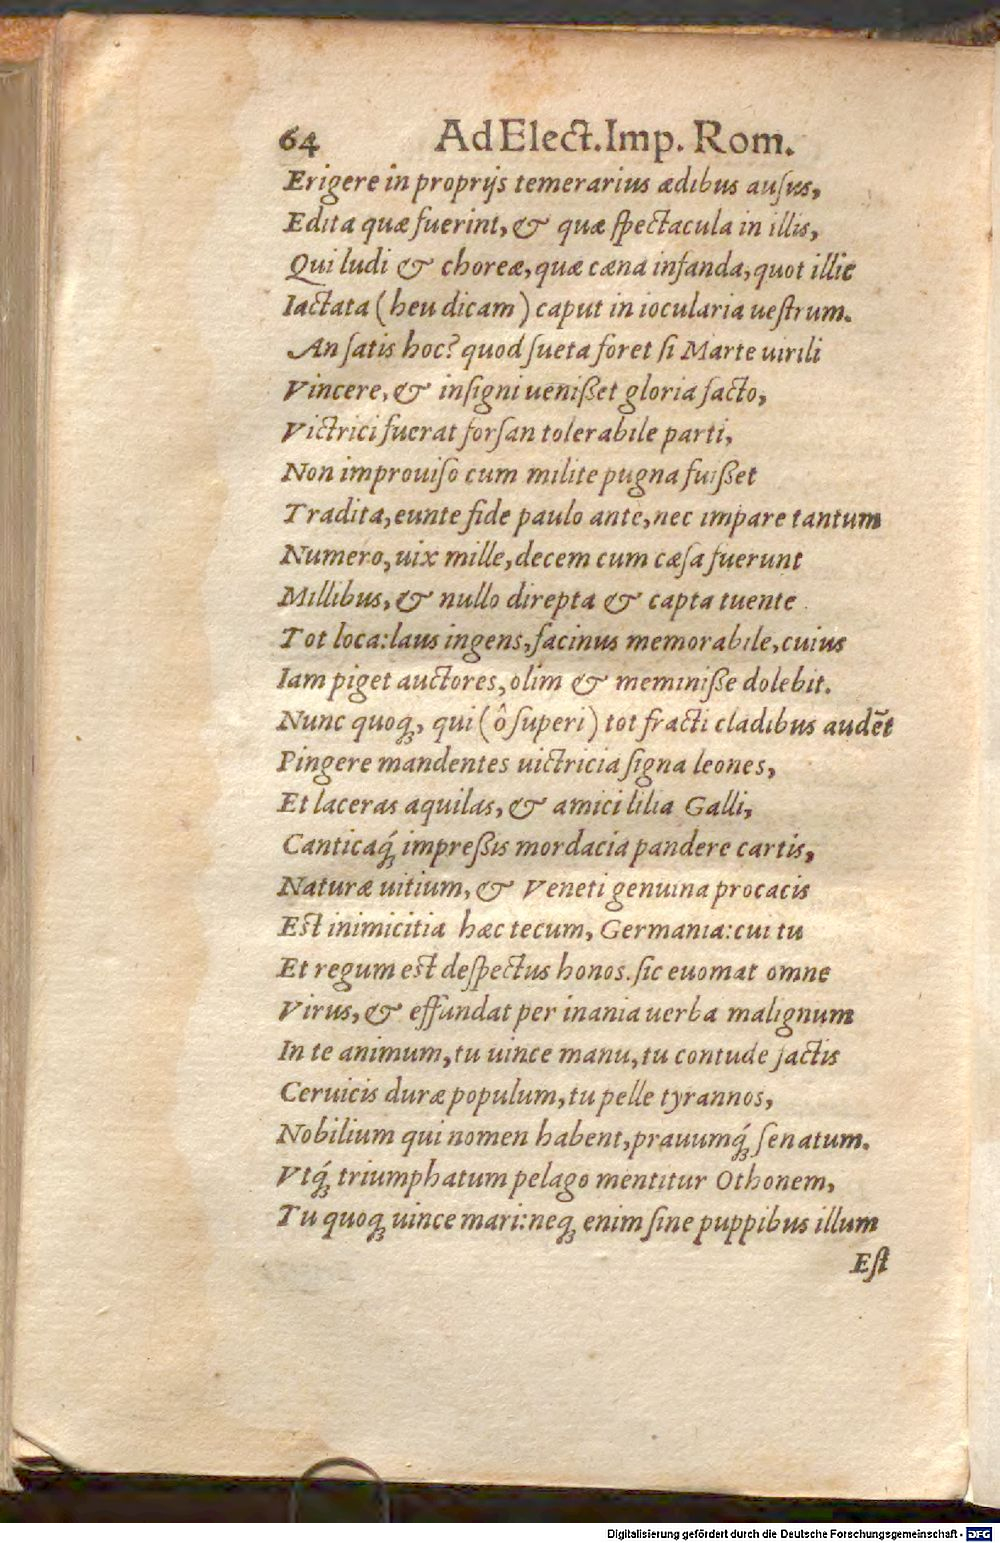 64 Ad Elect. Imp. Rom.
Erigere in proprijs temerarius ædibus ausus,
Edita quæ fuerint, & quæ spectacula in illis,
Qui ludi & choreæ, quæ cæna infanda, quot illic
Iactata (heu dicam) caput in iocularia uestrum.
An satis hoc? quod sueta foret si Marte uirili
Vincere, & insigni uenißet gloria facto,
Victrici fuerat forsan tolerabile parti,
Non improuiso cum milite pugna fuißet
Tradita, eunte fide paulo ante, nec impare tantum
Numero, uix mille, decem cum cæsa fuerunt
Millibus, & nullo direpta & capta tuente
Tot loca: laus ingens, facinus memorabile, cuius
Iam piget auctores, olim & meminiße dolebit.
Nunc quoqꝫ, qui (ô superi) tot fracti cladibus audẽt
Pingere mandentes uictricia signa leones,
Et laceras aquilas, & amici lilia Galli,
Canticaqꝫ́ impreßis mordacia pandere cartis,
Naturæ uitium, & Veneti genuina procacis
Est inimicitia hæc tecum, Germania: cui tu
Et regum est despectus honos. sic euomat omne
Virus, & effundat per inania uerba malignum
In te animum, tu uince manu, tu contude factis
Ceruicis duræ populum, tu pelle tyrannos,
Nobilium qui nomen habent, prauumqꝫ́ senatum.
Vtqꝫ́ triumphatum pelago mentitur Othonem,
Tu quoqꝫ uince mari: neqꝫ enim sine puppibus illum
Est
Digitalisierung gefördert durch die Deutsche Forschungsgemeinschaft - DFG